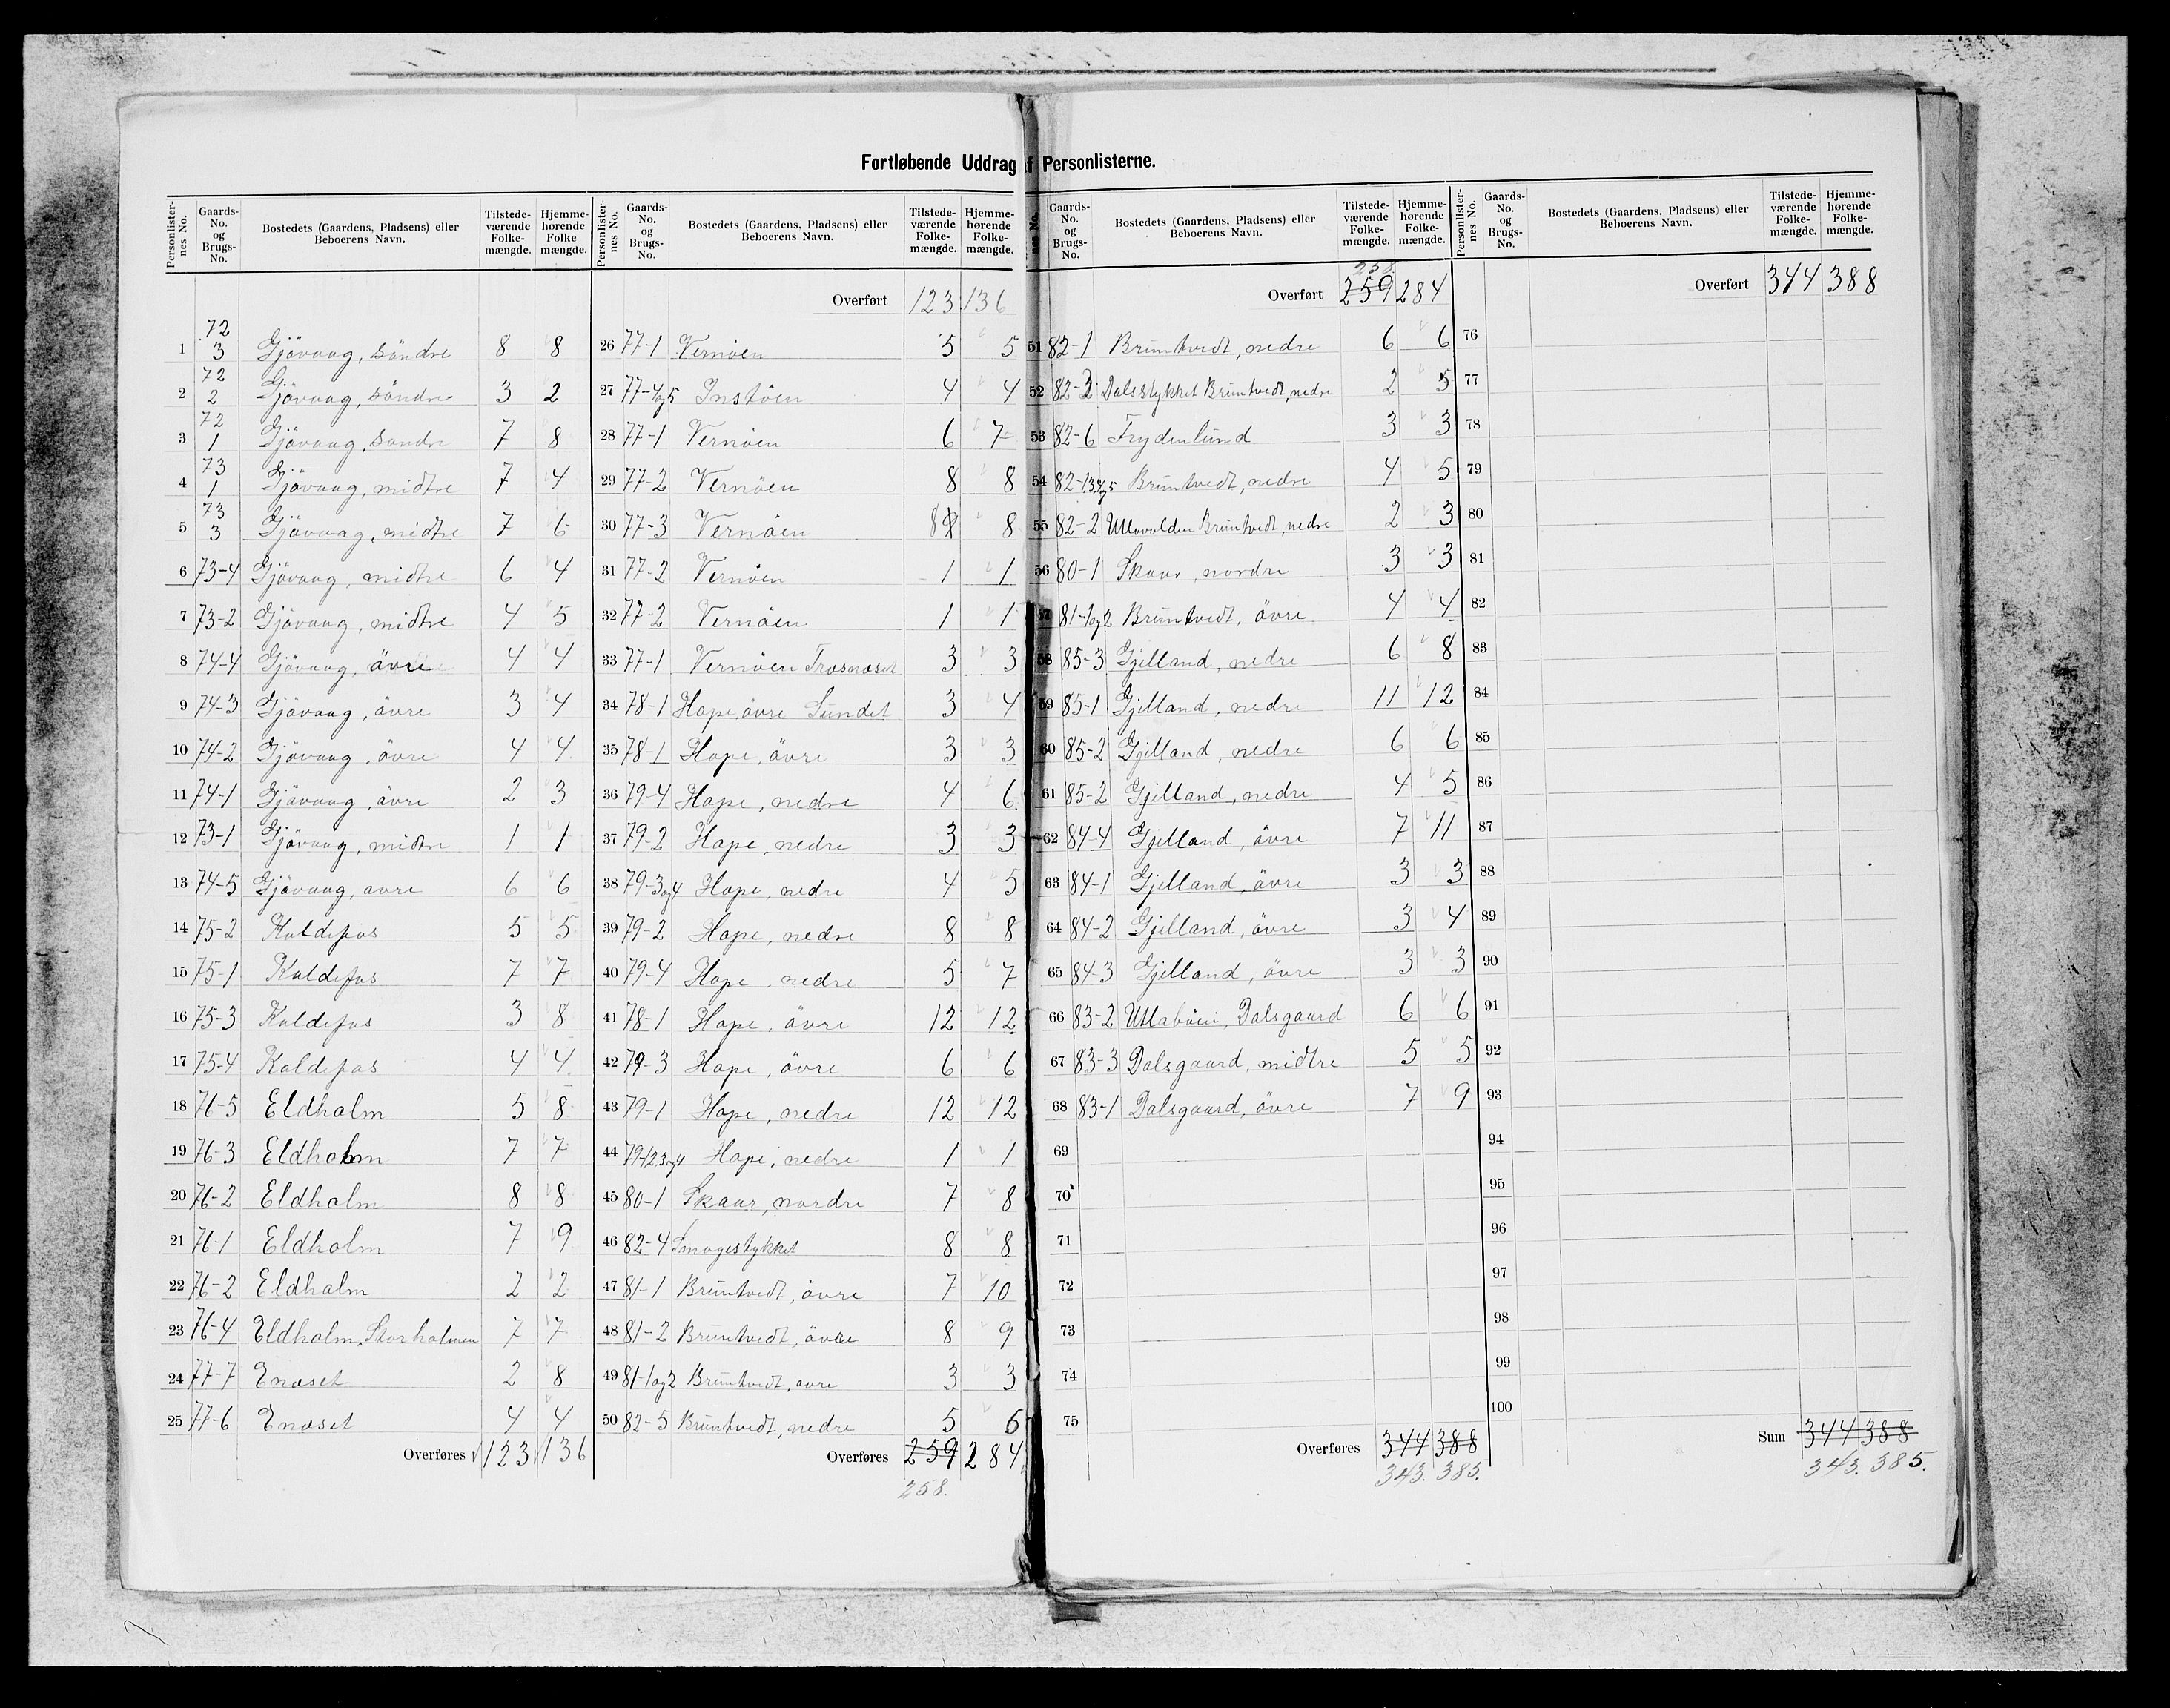 Fortløbende Uddrag af Personlisterne.
Personlister-nes No. Gaards-No. og Brugs-No. Bostedets (Gaardens, Pladsens) eller Beboerens Navn. Tilstede-værende Folke-mængde. Hjemme-hørende Folke mængde.
1 72 3 Gjövaag, söndre 8 8
2 72 2 Gjövaag, söndre 3 2
3 72 1 Gjövaag, söndre 7 8
4 73 1 Gjövaag, midtre 7 4
5 73 3 Gjövaag, midtre 7 6
6 73-4 Gjövaag, midtre 6 4
7 73-2 Gjövaag, midtre 4 5
8 74-4 Gjövaag, övre 4 4
9 74-3 Gjövaag, övre 3 4
10 74-2 Gjövaag, övre 4 4
11 74-1 Gjövaag, övre 2 3
12 73-1 Gjövaag, midtre 1 1
13 74-5 Gjövaag, övre 6 6
14 75-2 Kaldefos 5 5
15 75-1 Kaldefos 7 7
16 75-3 Kaldefos 3 8
17 75-4 Kaldefos 4 4
18 76-5 Eldholm 5 8
19 76-3 Eldholm 7 7
20 76-2 Eldholm 8 8
21 76-1 Eldholm 7 9
22 76-2 Eldholm 2 2
23 76-4 Eldholm, Storholmen 7 7
24 77-7 Enæset 2 8
25 77-6 Enæset 4 4
Overføres 123 136
Personlister-nes No. Gaards-No. og Brugs-No. Bostedets (Gaardens, Pladsens) eller Beboerens Navn. Tilstede-værende Folke-mængde. Hjemme-hørende Folke-mængde.
Overført 123 136
26 77-1 Vernöen 5 5
27 77-4og5 Instöen 4 4
28 77-1 Vernöen 6 7
29 77-2 Vernöen 8 8
30 77-3 Vernöen 8 8
31 77-2 Vernöen 1 1
32 77-2 Vernöen 1 1
33 77-1 Vernöen Træsnæset 3 3
34 78-1 Hope, övre Sundet 3 4
35 78-1 Hope, övre 3 3
36 79-4 Hope, nedre 4 6
37 79-2 Hope, nedre 3 3
38 79-3og4 Hope, nedre 4 5
39 79-2 Hope, nedre 8 8
40 79-4 Hope, nedre 5 7
41 78-1 Hope, övre 12 12
42 79-3 Hope, övre 6 6
43 79-1 Hope, nedre 12 12
44 79-1,2,3og4 Hope, nedre 1 1
45 80-1 Skaar, nordre 7 8
46 82-4 Smogestykket 8 8
47 81-1 Bruntvedt, övre 7 10
48 81-2 Bruntvedt, övre 8 9
49 81-1og2 Bruntvedt, övre 3 3
50 82-5 Bruntvedt, nedre 5 6
Overføres 259 284
258.
nes No. Gaards-No. og Brugs-No. Bostedets (Gaardens, Pladsens) eller Beboerens Navn. Tilstede-værende Folke-mængde. Hjemme-hørende Folke-mængde.
258.
Overført 259 284
51 82-1 Bruntvedt, nedre 6 6
52 82-3 Dalsstykket Bruntvedt, nedre 2 5
53 82-6 Frydenlund 3 3
54 82-1,3,4og5 Bruntvedt, nedre 4 5
55 82-2 Utlevolden Bruntvedt, nedre 2 3
56 80-1 Skaar, nordre 3 3
57 81-1og2 Bruntvedt, övre 4 4
58 85-3 Gjelland, nedre 6 8
59 85-1 Gjelland, nedre 11 12
60 85-2 Gjelland, nedre 6 6
61 85-2 Gjelland, nedre 4 5
62 84-4 Gjelland, övre 7 11
63 84-1 Gjelland, övre 3 3
64 84-2 Gjelland, övre 3 4
65 84-3 Gjelland, övre 3 3
66 83-2 Utlaböen, Dalsgaard 6 6
67 83-3 Dalsgaard, midtre 5 5
68 83-1 Dalsgaard, övre 7 9
69
70
71
72
73
74
75
Overføres 344 388
343. 385.
Personlister-nes No. Gaards-No. og Brugs-No. Bostedets (Gaardens, Pladsens) eller Beboerens Navn. Tilstede-værende Folke-mængde. Hjemme-hørende Folke-mængde.
Overført 344 388
76
77
78
79
80
81
82
83
84
85
86
87
88
89
90
91
92
93
94
95
96
97
98
99
100
Sum 344 388
343. 385.